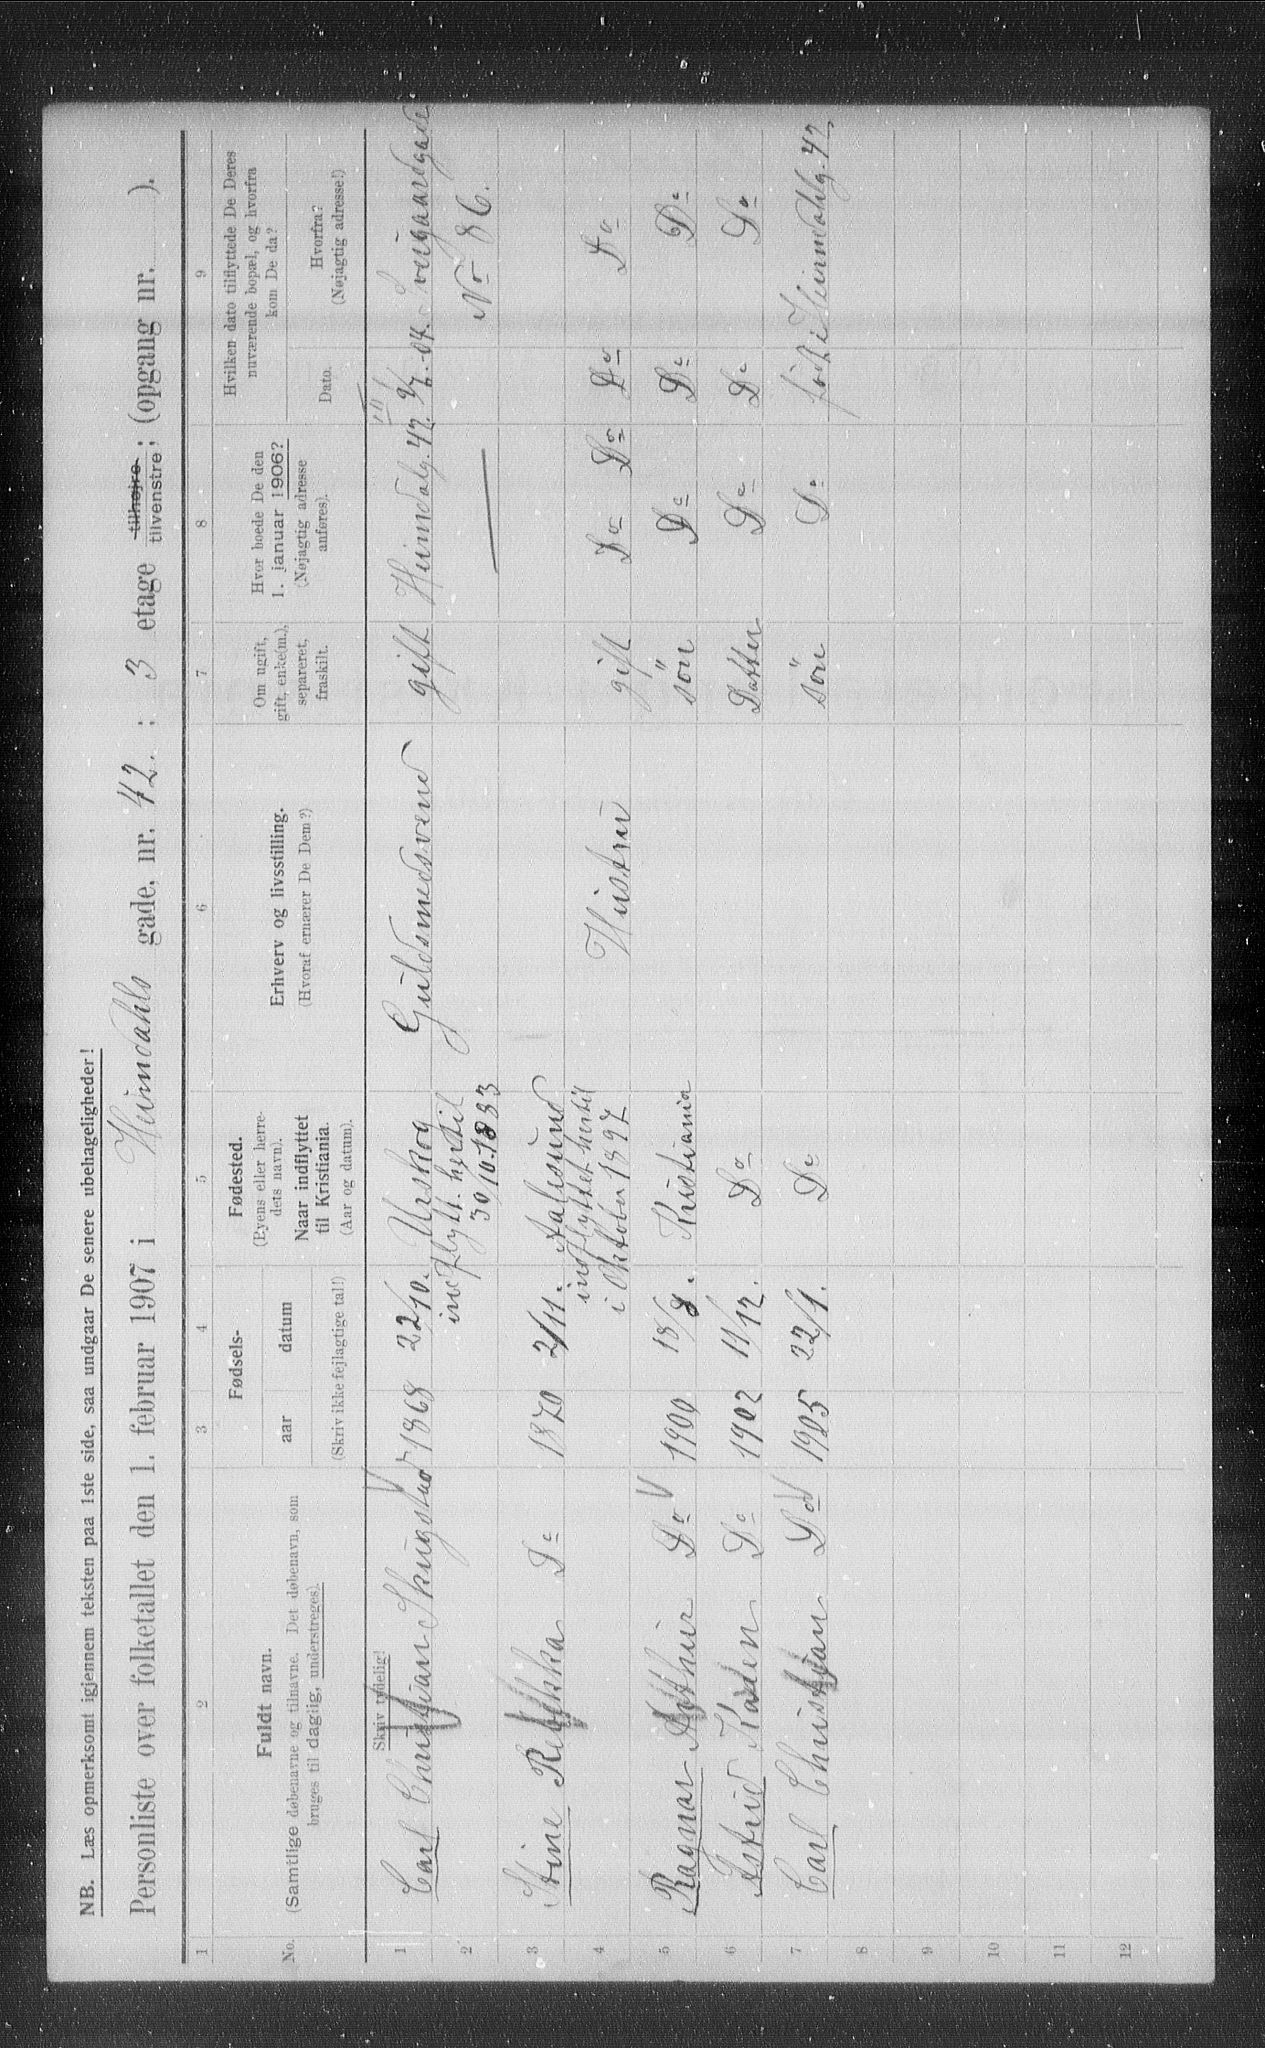 NB. Læs opmerksomt igjennem teksten paa 1ste side, saa undgaar De senere ubehageligheder!
Personliste over folketallet den 1. februar 1907 i Heimdahls gade, nr. 42. : 3 etage tilhøjre tilvenstre ; (opgang nr. ).
1 2 3 4 5 6 7 8 9
No.
Fuldt navn.
(Samtlige døbenavne og tilnavne. Det døbenavn, som
bruges til dagtig, understreges).
Fødsels-
aar datum
(Skriv ikke fejlagtige tal!)
Fødested.
(Byens eller herre-
dets navn).
Naar indflyttet
til Kristiania.
(Aar og datum).
Erhverv og livsstilling.
(Hvoraf ernærer De Dem?)
Om ugift,
gift, enke(m.),
separeret,
fraskilt.
Hvor boede De den
1. januar 1906?
(Nøjagtig adresse
anføres).
Hvilken dato tilflyttede De Deres
nuværende bopæl, og hvorfra
kom De da?
Dato.
Hvorfra?
(Nøjagtig adresse!)
Skriv tydelig!
1 Carl Christian Skugstad 1868 22/10. Urskog Guldsmedsvend gift Heimdalg. 42. -04. Sveigaardgade
2 indflytt. hertil No 86.
30/10.1883
3 Stine Rebekka Do 1870 2/11. Aalesund
4 indflyttet hertil Hustru gift Do Do Do Do
i Oktober 1897
5 Ragnar Arthur Do 1900 18/8. Kristiania søn Do Do Do
6 Astrid Karen Do 1902 11/12. Do Datter Do Do Do
7 Carl Christian Do 1905 22/1. Do søn Do født i Heimdahlg. 42
8
9
10
11
12